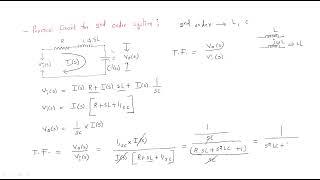 - Practical Circuit for 2nd order system :
2nd order → L, C
R L → SL
Vi(s) I(s) C (1/sC) Vo(s)
T.F. = Vo(s) / Vi(s)
sL → L
Vi(s) = I(s) R + I(s) sL + I(s) 1/sC
Vi(s) = I(s) [R + SL + 1/sC]
Vo(s) = 1/sC × I(s)
T.F. = Vo(s)/Vi(s) = 1/sC × I(s) / I(s) [R + SL + 1/sC] = 1/sC / (R SC + S²LC + 1)/sC = 1 / S²LC +